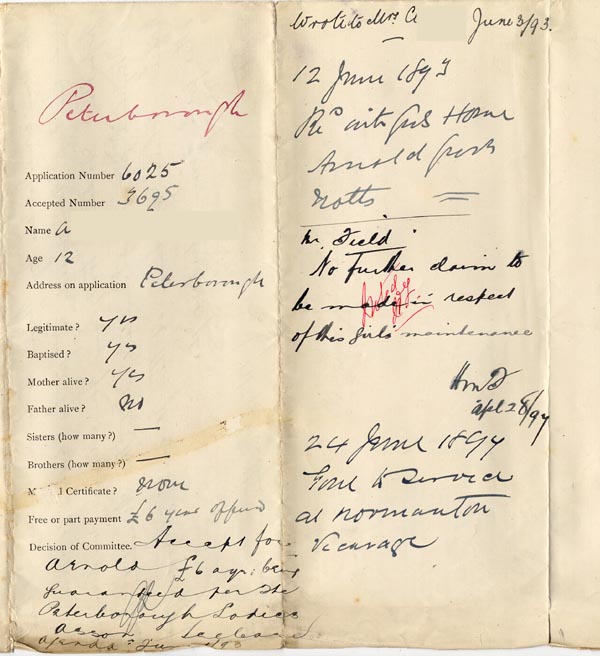 Peterborough
Application Number 6025
Accepted Number 3695
Name A
Age 12
Address on application Peterborough
Legitimate? yes
Baptised? yes
Mother alive? yes
Father alive? no
Sisters (how many?) —
Brothers (how many?) —
Certificate? None
Free or part payment £6 year offered
Decision of Committee. Accept for
Arnold £6 a yr: being
guaranteed per the
Peterborough Ladies
Asson
93
Wrote to Mrs A June 3/93.
12 June 1893
Rec^d into Girls Home
Arnold
Notts
Mr. Field
No further claim to
be made in respect
of this girl's maintenance
28/97
24 June 1897
Gone to service
at Normanton
Vicarage